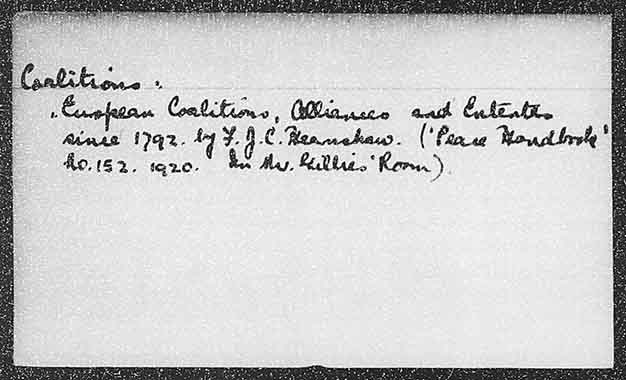 Coalitions.
European Coalitions, Alliances and Ententes
since 1792. by F. J. C. Hearnshaw. ('Peace Handbook'
No. 152. 1920. In Mr. Gillies' Room)